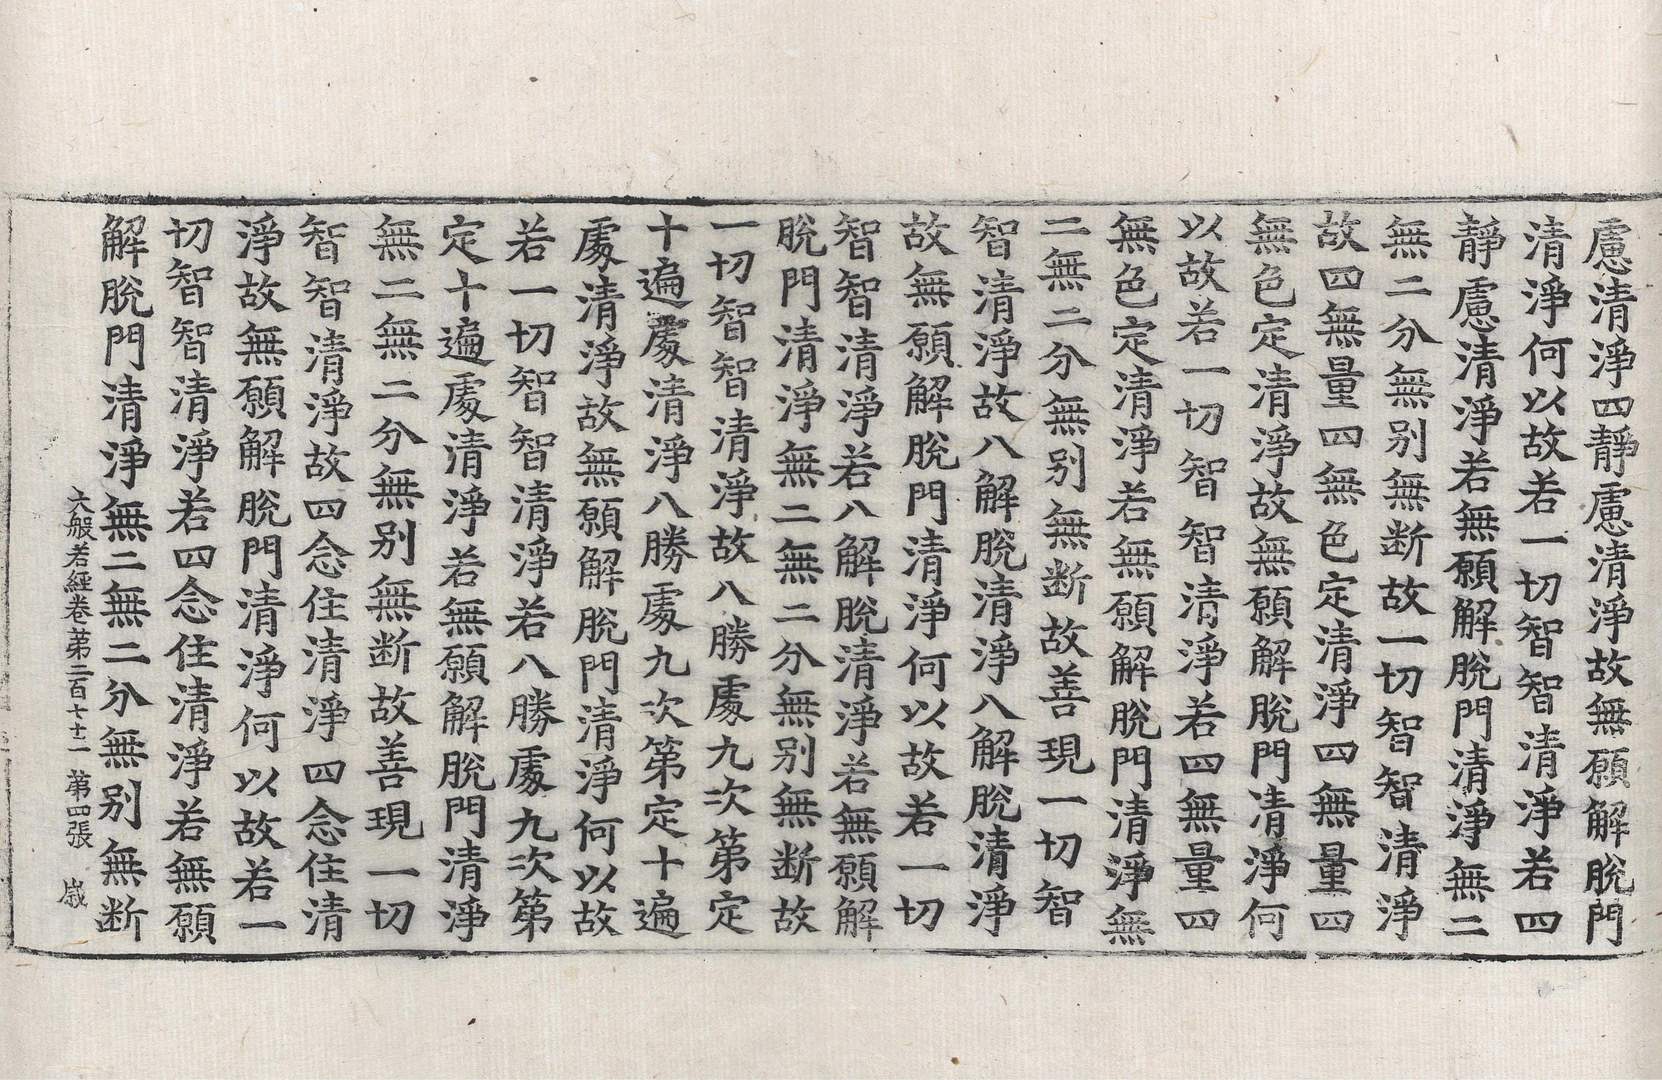 慮清淨四靜慮清淨故無願解脫門
清淨何以故若一切智智清淨若四
靜慮清淨若無願解脫門清淨無二
無二分無别無断故一切智智清淨
故四無量四無色定清淨四無量四
無色定清淨故無願解脫門清淨何
以故若一切智智清淨若四無量四
無色定清淨若無願解脫門清淨無
二無二分無别無断故善現一切智
智清淨故八解脫清淨八解脫清淨
故無願解脫門清淨何以故若一切
智智清淨若八解脫清淨若無願解
脫門清淨無二無二分無别無断故
一切智智清淨故八勝處九次第定
十遍處清淨八勝處九次第定十遍
處清淨故無願解脫門清淨何以故
若一切智智清淨若八勝處九次第
定十遍處清淨若無願解脫門清淨
無二無二分無别無断故善現一切
智智清淨故四念住清淨四念住清
淨故無願解脫門清淨何以故若一
切智智清淨若四念住清淨若無願
解脫門清淨無二無二分無别無断
大般若經卷第二百七十二 第四張 歲